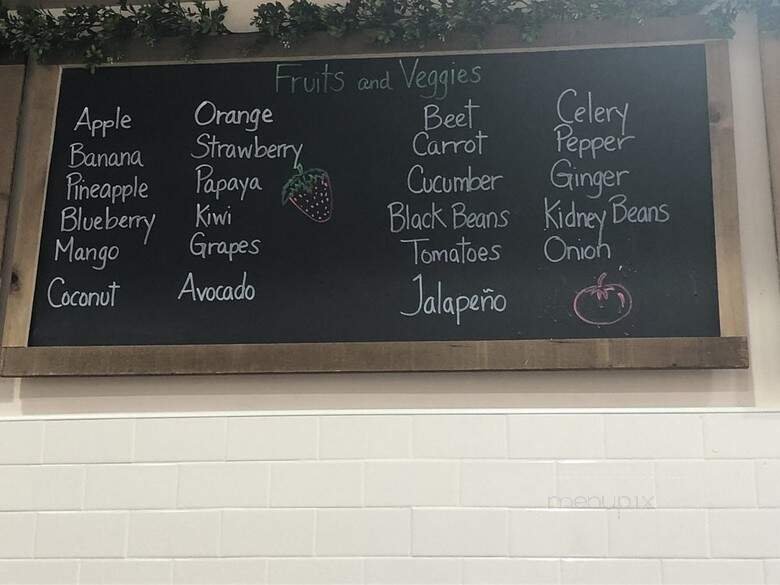 Fruits and Veggies
Apple
Banana
Pineapple
Blueberry
Mango
Coconut
Orange
Strawberry
Papaya
Kiwi
Grapes
Avocado
Beet
Carrot
Cucumber
Black Beans
Tomatoes
Jalapeño
Celery
Pepper
Ginger
Kidney Beans
Onion
menupix